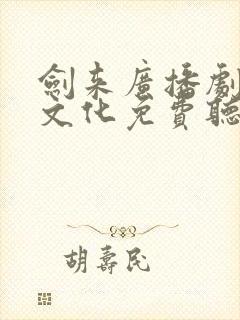 劍来廣播劇
文化免費聽
胡壽民